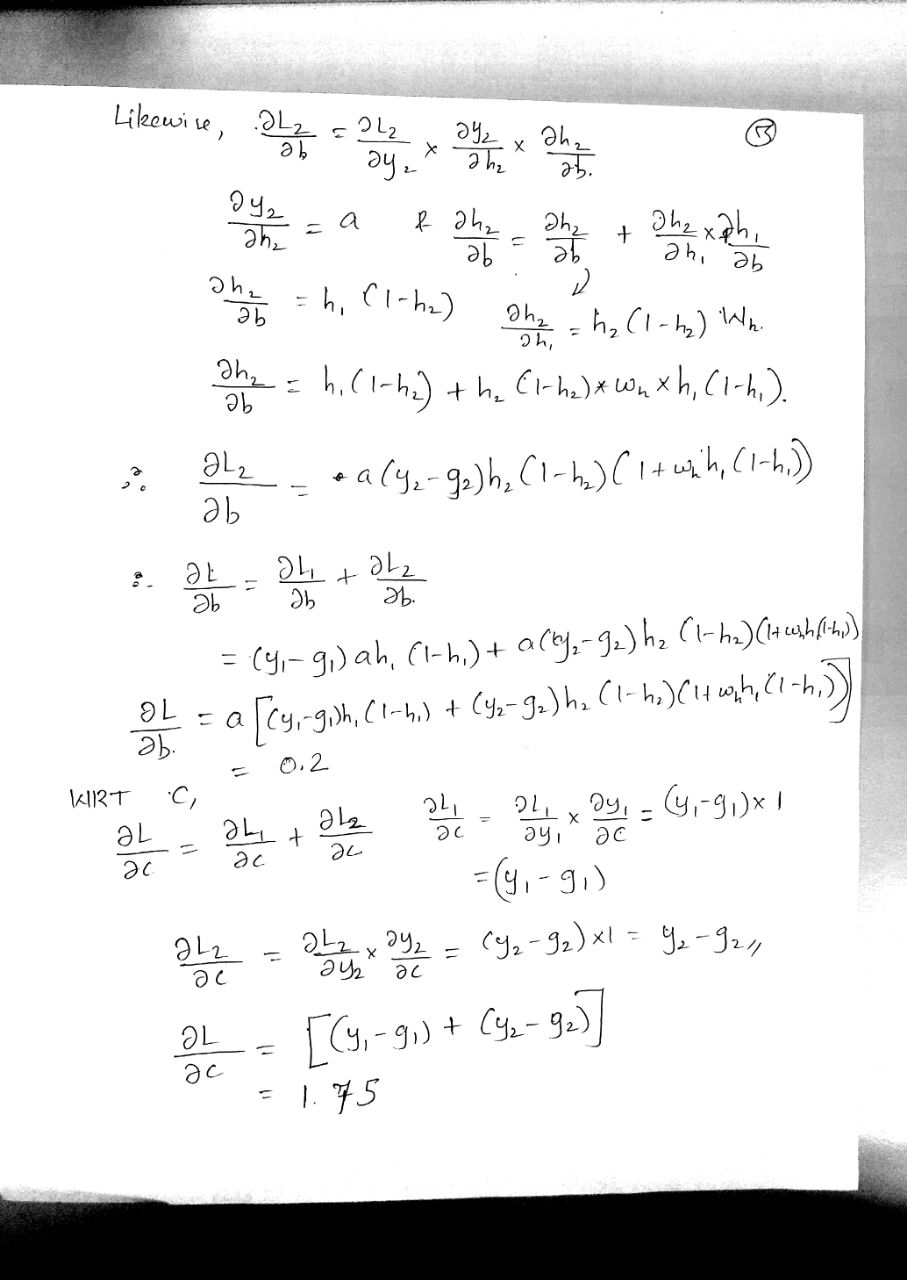 Likewise, ∂L₂/∂b = ∂L₂/∂y₂ × ∂y₂/∂h₂ × ∂h₂/∂b. ⑬
∂y₂/∂h₂ = a & ∂h₂/∂b = ∂h₂/∂b + ∂h₂/∂h₁ × ∂h₁/∂b
∂h₂/∂b = h₁ (1-h₂) ∂h₂/∂h₁ = h₂(1-h₂) Wh.
∂h₂/∂b = h₁(1-h₂) + h₂ (1-h₂)* wh × h₁ (1-h₁).
∴ ∂L₂/∂b = a(y₂-g₂)h₂(1-h₂)(1+wh h₁(1-h₁))
∴ ∂L/∂b = ∂L₁/∂b + ∂L₂/∂b.
= (y₁-g₁) ah₁ (1-h₁) + a(y₂-g₂) h₂ (1-h₂)(1+wh h(1-h₁))
∂L/∂b. = a[(y₁-g₁)h₁(1-h₁) + (y₂-g₂)h₂(1-h₂)(1+wh h₁(1-h₁))]
= 0.2
WRT C,
∂L/∂c = ∂L₁/∂c + ∂L₂/∂c ∂L₁/∂c = ∂L₁/∂y₁ × ∂y₁/∂c = (y₁-g₁)×1
=(y₁-g₁)
∂L₂/∂c = ∂L₂/∂y₂ × ∂y₂/∂c = (y₂-g₂)×1 = y₂-g₂,,
∂L/∂c = [(y₁-g₁) + (y₂-g₂)]
= 1.75